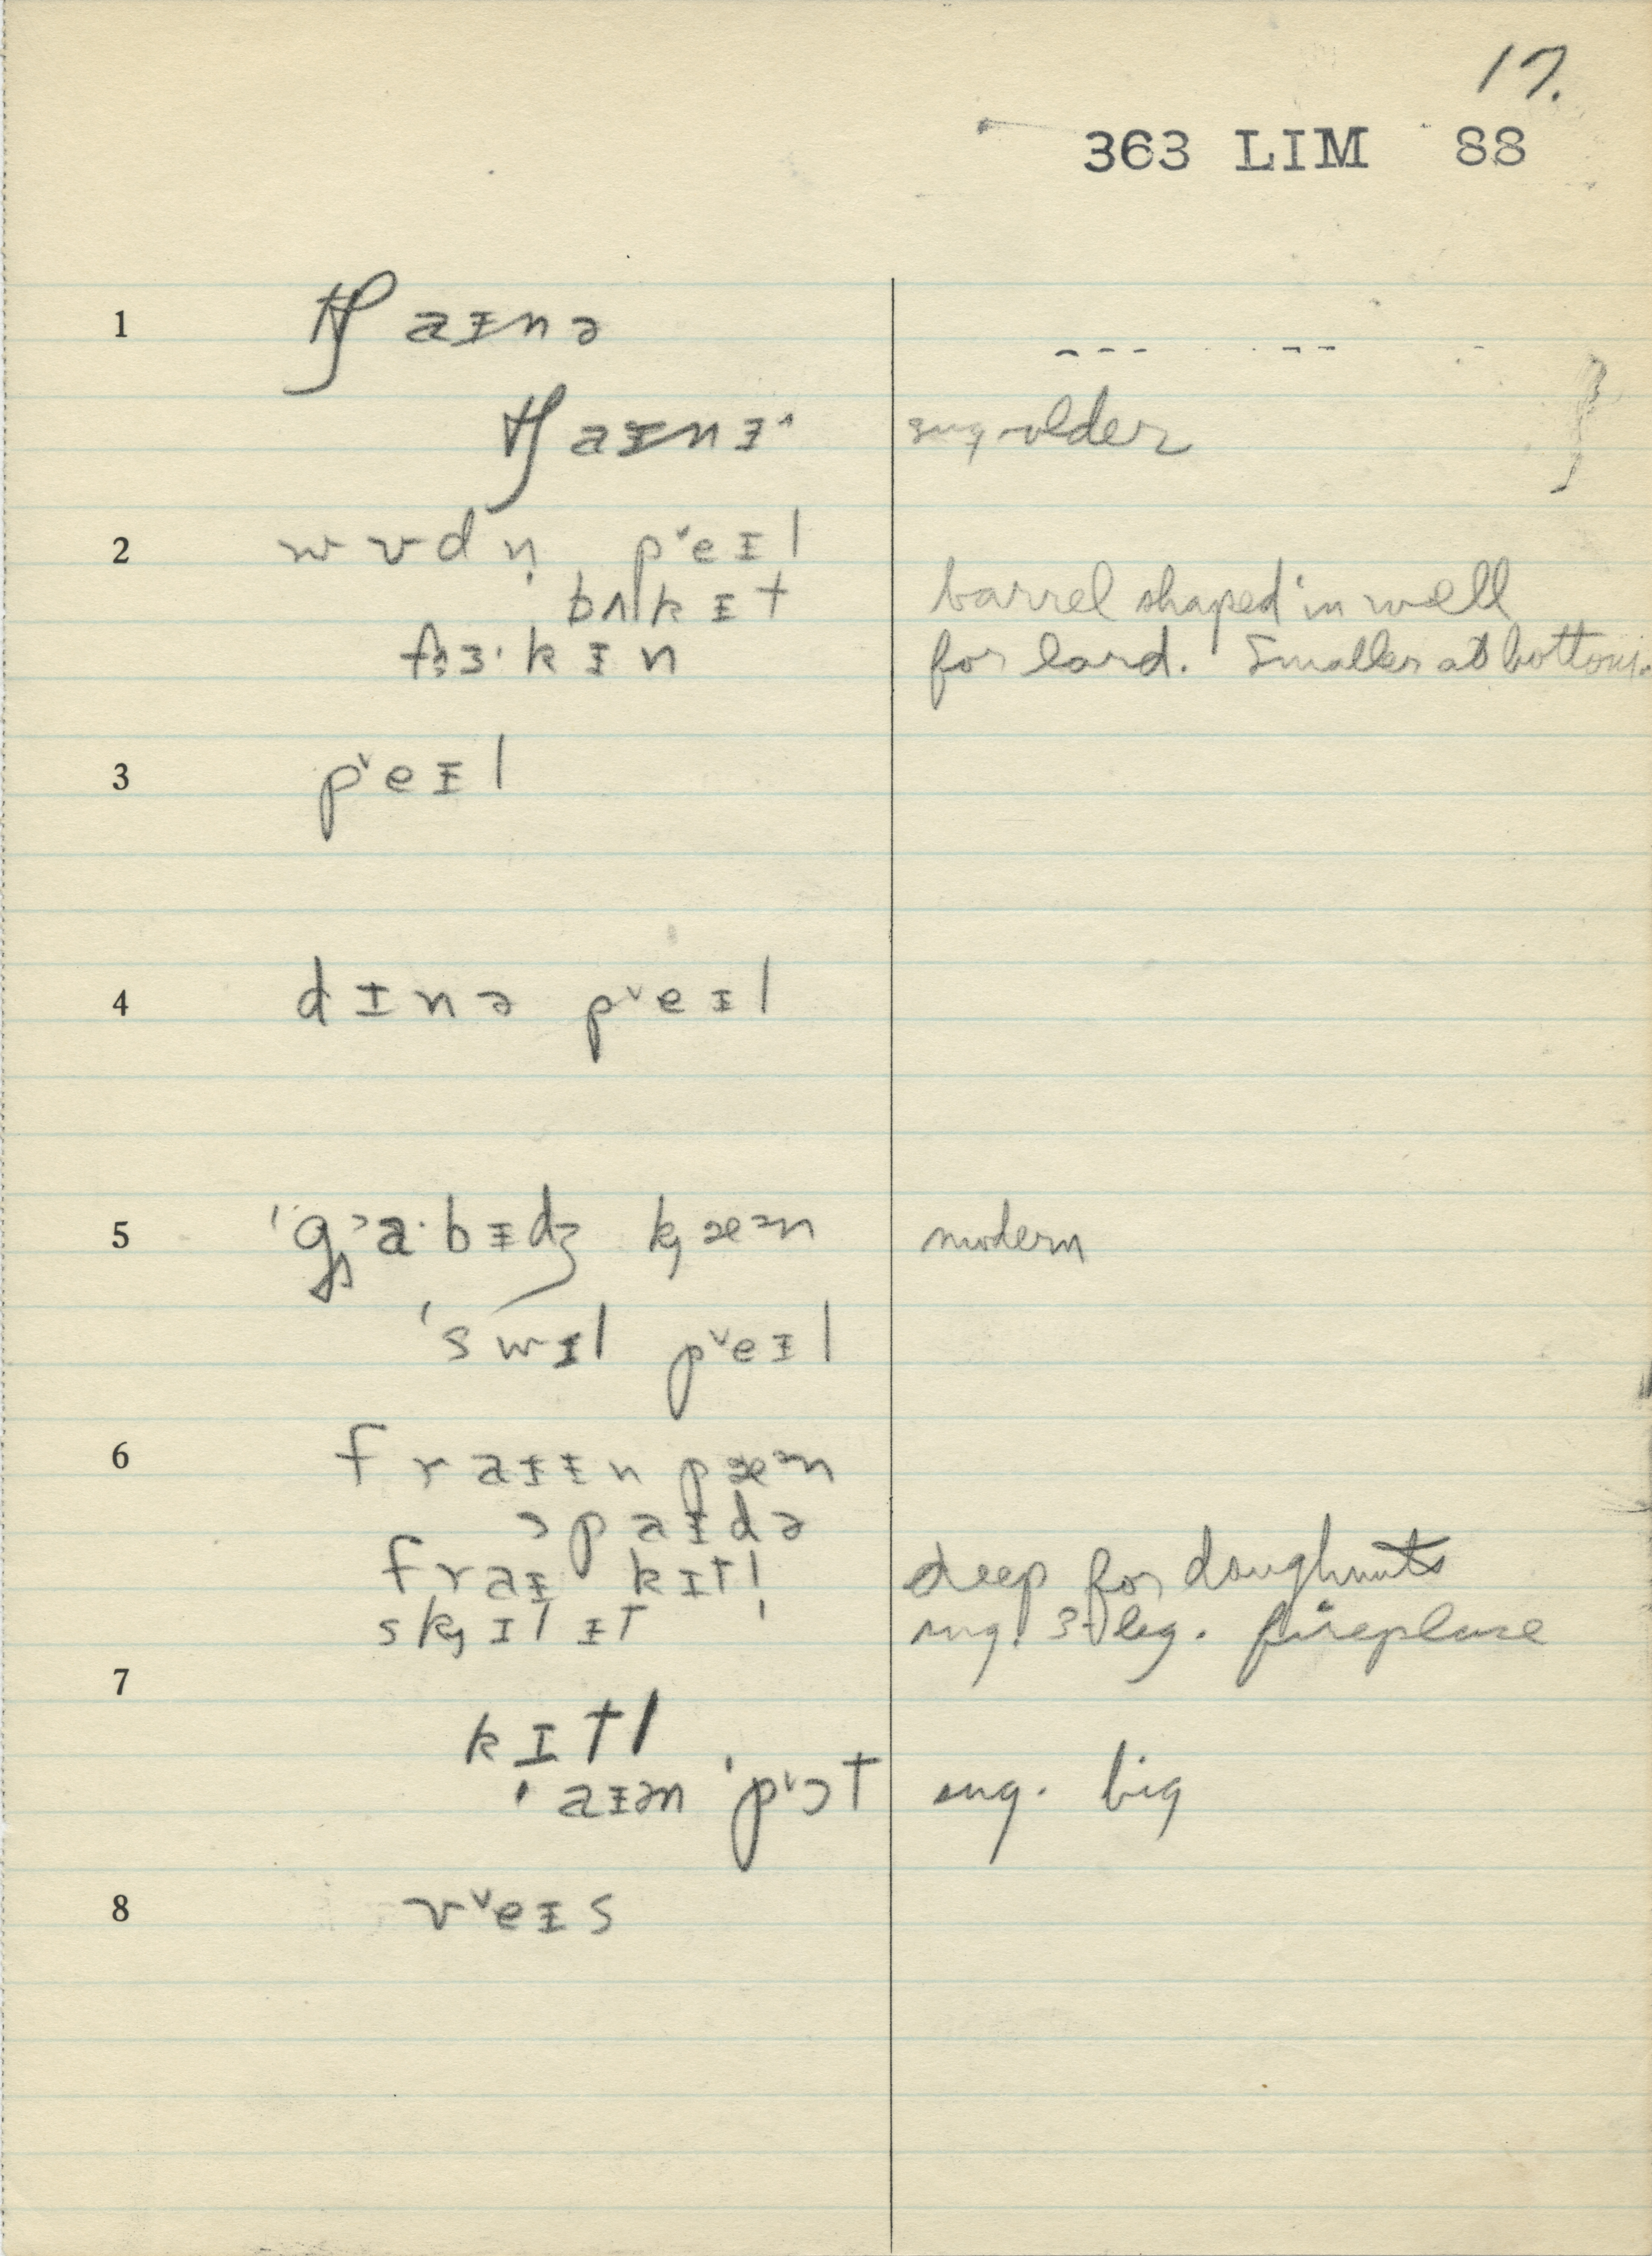 17.
363 LIM 88
1 tʃaɪnə
tʃaɪnɜ˞ sug. older
2 wʊdn̩ pᵛeɪl
bʌkɪt barrel shaped in well
fɜ·kɪn for lard. Smaller at bottom.
3 pᵛeɪl
4 dɪnə pᵛeɪl
5 ˈgaˑbɪdʒ kæᵊn modern
ˈswɪl pᵛeɪl
6 fraɪɪn pæᵊn
spaɪdə
fraɪ kɪtl̩ deep for doughnuts
skɪlɪt sug. 3-leg. fireplace
7 kɪtl
ˈaɪən ˈpᵛɔt sug. big
8 vᵛeɪs